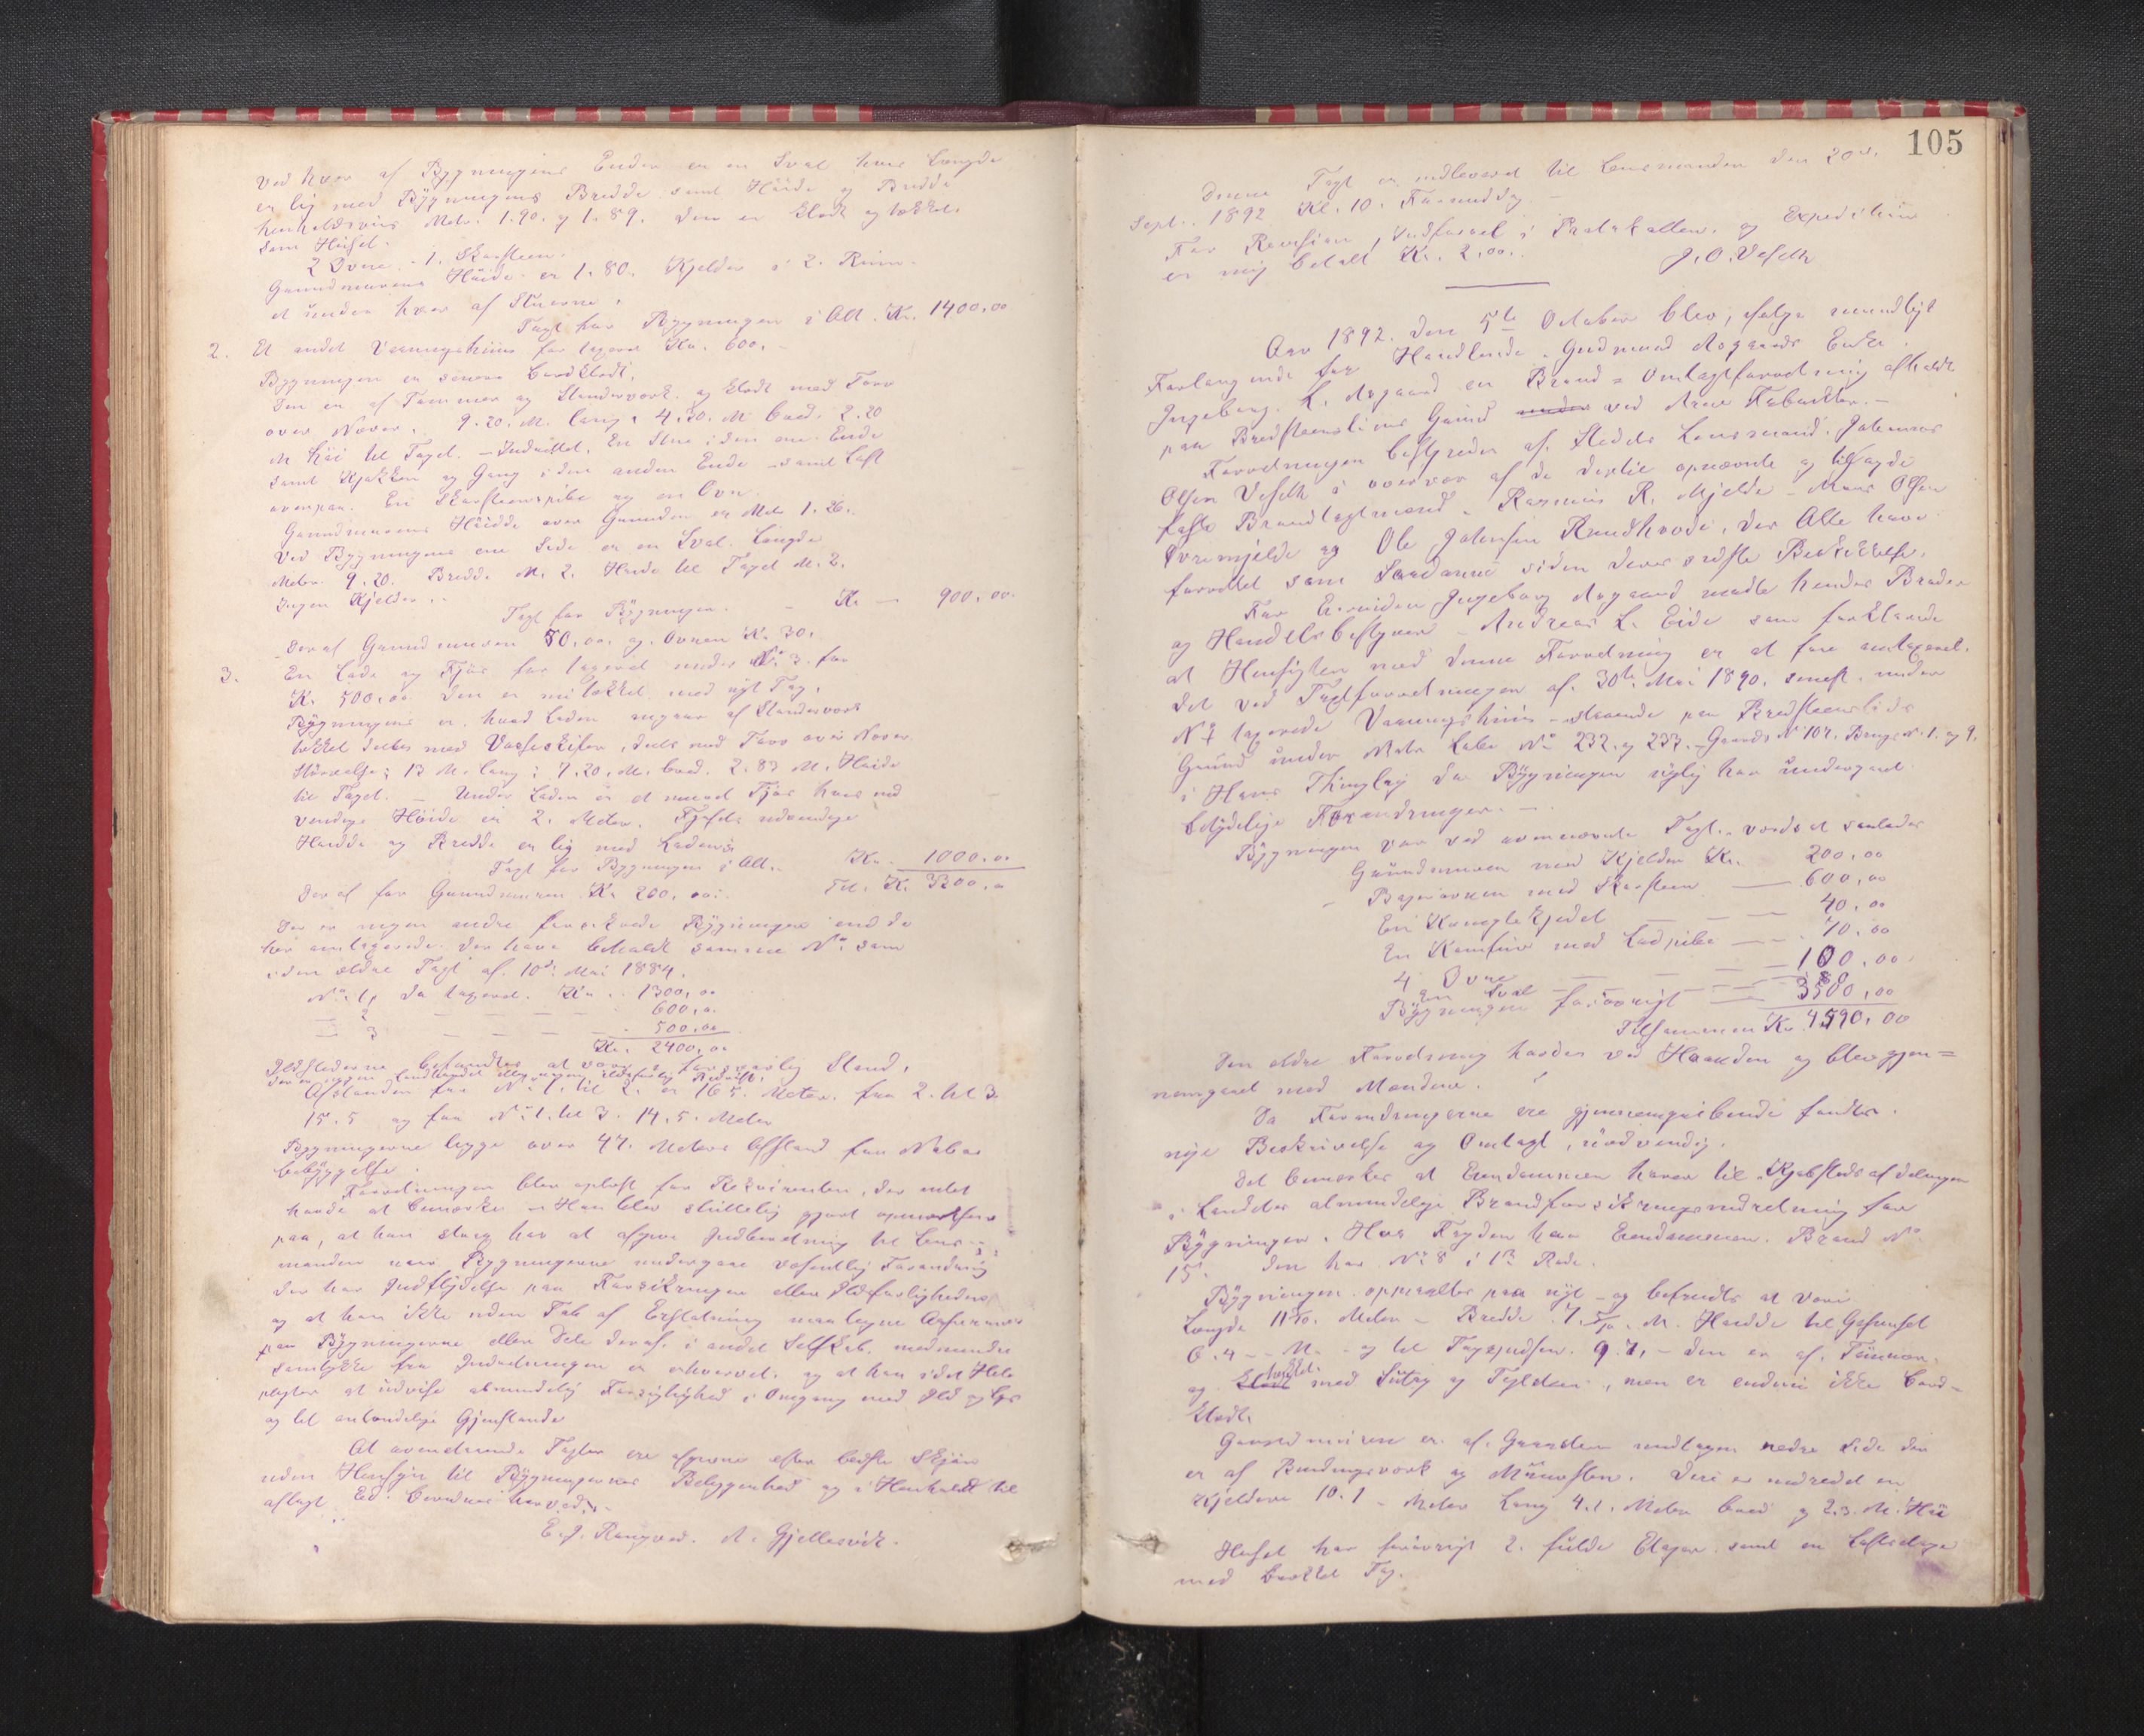 Ved hver af Bygningens Ender er en Sval hvis Længde
er lig med Bygningens Bredde samt Høide og Bredde
henholdsvis Meter 1.90. og 1.89. Den er klædt og tækket
som Huset.
2 Ovne. 1. Skorsteen.
Grundmurens Høide er 1.80. Kjelder i 2. Rum
et under hver af Stuerne.
Taxt for Bygningen i Alt. Kr. 1400,00
2. Et andet Vaaningshuus før taxeret Kr. 600.
Bygningen er senere bordklædt.
Den er af Tømmer og Standerværk og klædt med Torv
over Næver. 9.20. M. lang, 4.30. M. bred. 2.20
M høi til Taget. Indredet, En Stue i den ene Ende
samt Kjøkken og Gang i den anden Ende samt Loft
ovenpaa. En Skorsteenspibe og en Ovn.
Grundmurens Høidde over Grunden er Metr 1.26.
Ved Bygningens ene Side er en Sval. Længde
Meter 9.20. Bredde M. 2. Høide til Taget M. 2.
Ingen Kjelder.
Taxt for Bygningen. Kr. 900,00.
Deraf Grundmuren 50,00. og Ovnen Kr. 30.
3. En Lade og Fjøs før taxeret under No 3. for
Kr. 500,00 Den er nu tækket med nyt Tag.
Bygningens er hvad Laden angaar af Standerværk
tækket deels med Vosseskifer, deels med Torv over Næver.
Størrelse; 13 M. lang; 7.20. M. bred. 2.83 M. Høide
til Taget. Under Laden er et muret Fjøs hvis ind
vendige Høide er 2. Meter. Fjøsets udvendige
Høidde og Bredde er lig med Ladens
Taxt for Bygningen i Alt. Kr. 1000,00
Deraf for Grundmuren Kr 200,00. Til. Kr. 3300,00
Der er ingen andre forsikrede Bygninger end de
her omtaxerede. Der have beholdt samme No som
i den ældre Taxt af 10de Mai 1884.
No 1, da taxeret. Kr. 1300,00
2 600,00
3 500,00
Kr. 2400,00
Ildstederne befandtes at være i forsvarlig Stand.
Der er ingen Landhandel eller nogen ildsfarlig Bedrift.
Afstanden fra No 1. til 2. er 16.5. Meter. fra 2. til 3.
15.5 og fra No 1. til 3. 14.5. Meter
Bygningerne ligge over 47. Meters Afstand fra Nabo
bebyggelse.
Forretningen blev oplæst for Rekvirenten, der intet
havde at bemærke. Han blev skriftelig gjort opmærksom
paa, at han strax har at afgive Indberetning til Lens-
manden naar Bygningerne undergaar væsentlig Forandring
der har Indflydelse paa Forsikringen eller Ildsfarligheden,
og at han ikke uden Tab af Erstatning maa tegne Assurance
paa Bygningerne eller Dele deraf i andet Selskab, medmindre
Samtykke fra Indretningen er erhvervet. og at han i det Hele
pligter at udvise almindelig Forsigtighed i Omgang med Ild og Lys
og let antændelige Gjenstande
At ovenstaaende Taxter ere afgivne efter bedste Skjøn
uden Hensyn til Bygningernes Beliggenhed og i Henhold til
aflagt Ed. bevidnes herved.
E. J. Rangved. A. Gjellesvik.
105
Denne Taxt er indleveret til Lensmanden den 20de
Sept. 1892 Kl. 10. Formiddag.
For Revision, Indførsel i Protokollen. og Expedition
er mig betalt Kr. 2,00.
J. O. Veseth
Aar 1892. den 5te October blev, ifølge mundligt
Forlangende fra Handlende Gudmund Aagaards Enke
Ingeborg. L. Aagaard en Brand- Omtaxtforretning afholdt
paa Bredsteensliens Grund under ved Arne Fabrikker.
Forretningen bestyredes af Stedets Lensmand. Johannes
Olsen Veseth i overvær af de dertil opnævnte og tilsagde
faste Brandtaxtmænd. Rasmus R. Mjelde Mons Olsen
Øvremjelde og Ole Johnsen Rundhovde, der Alle have
forrettet som Saadanne siden deres sidste Beskikkelse.
For Eierinden Ingeborg Aagaard mødte hendes Broder
og Handelsbestyrer Andreas L. Eide som forklarede
at Hensigten med denne Forretning er at faae omtaxeret.
det ved Taxtforretningen af. 30te Mai 1890. senest. under
No 1 taxerede Vaaningshuus staaende paa Bredsteenslids
Grund under Matr Løbe No 232. og 233. Gaards No 107. Brugs No 1. og 9.
i Hans Thinglag da Bygningen nylig har undergaaet
betydelige Forandringer.
Bygningen var ved ovennævnte Taxt. værdsat saaledes
Grundmuren med Kjelder Kr. 200,00
Bageovnen med Skorsteen 600,00
En Komfur med Ladpibe 70,00
4 Ovne 100,00
Bygningen forøvrigt 3580,00
Tilsammen Kr. 4590,00
Den ældre Forretning havdes ved Haanden og blev gjen=
nemgaaet med Mændene.
Da Forandringerne ere gjennemgribende fandtes
nye Beskrivelse og Omtaxt, nødvendig.
Det bemærkes at Eiendommen hører til Kjøbstadsafdelingen
i Landets almindelige Brandforsikringsindretning for
Bygninger. Hos Fogden har Eiendommen. Brand No
15. den har No 8 i 13 Rode.
Bygningen opmaaltes paa nyt og befandtes at være
Længde 11 5/10. Meter Bredde 7. 5/10. M. Høidde til Gesimset
6.4 M. og til Tagrygningen. 9.7, den er af Tømmer.
og tækket med Sutag og Teglsteen, men er endnu ikke bord-
klædt.
Grundmuren er af Graasteen nedre Side der
er af Bindingsværk og Muursten. Deri er indredet en
Kjelder 10.1 Meter lang 4.1. Meter bred og 2.3. M. Høi
Huset har forøvrigt 2. fulde Etager samt en Loftsetage
med brækket Tag.